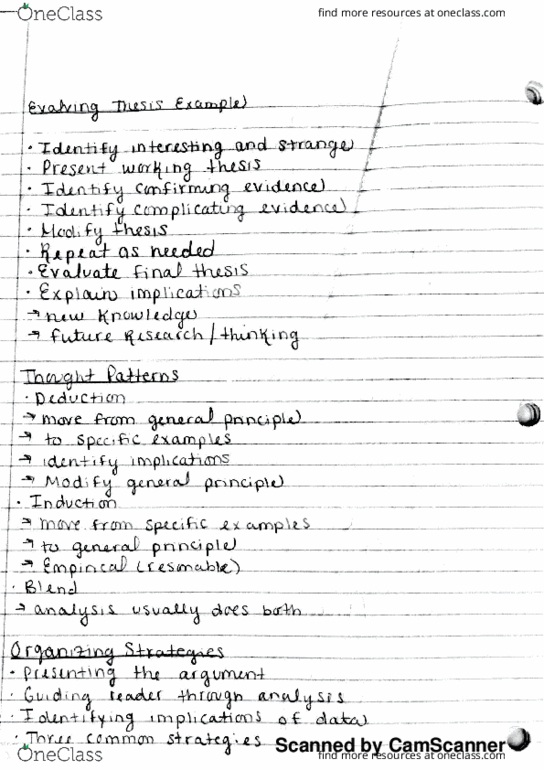 OneClass
find more resources at oneclass.com
Evolving Thesis Example
• Identify interesting and strange
• Present working thesis
• Identify confirming evidence
• Identify complicating evidence
• Modify thesis
• Repeat as needed
• Evaluate final thesis
• Explain implications
→ new knowledge
→ future research/thinking
Thought Patterns
• Deduction
→ move from general principle
→ to specific examples
→ identify implications
→ Modify general principle
• Induction
→ move from specific examples
→ to general principle
→ Empirical (resonable)
• Blend
→ analysis usually does both
Organizing Strategies
• Presenting the argument
• Guiding reader through analysis
• Identifying implications of data
• Three common strategies
Scanned by CamScanner
OneClass
find more resources at oneclass.com